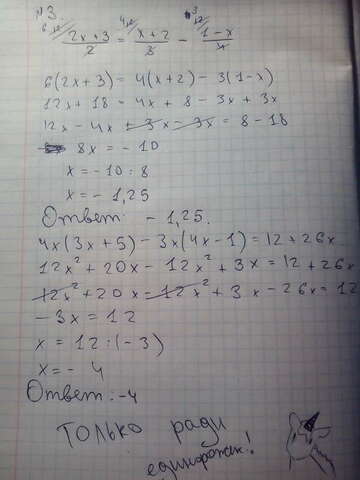 №3.
6\ 2x+3/2 = 4\ x+2/3 - 3\ 1-x/4
6(2x+3) = 4(x+2) - 3(1-x)
12x + 18 = 4x + 8 - 3x + 3x
12x - 4x + 3x - 3x = 8 - 18
8x = - 10
x = -10 : 8
x = - 1,25
Ответ: - 1,25.
4x(3x+5) - 3x(4x-1) = 12 + 26x
12x² + 20x - 12x² + 3x = 12 + 26x
12x² + 20x - 12x² + 3x - 26x = 12
-3x = 12
x = 12 : (-3)
x = - 4
Ответ: -4
ТОЛЬКО ради